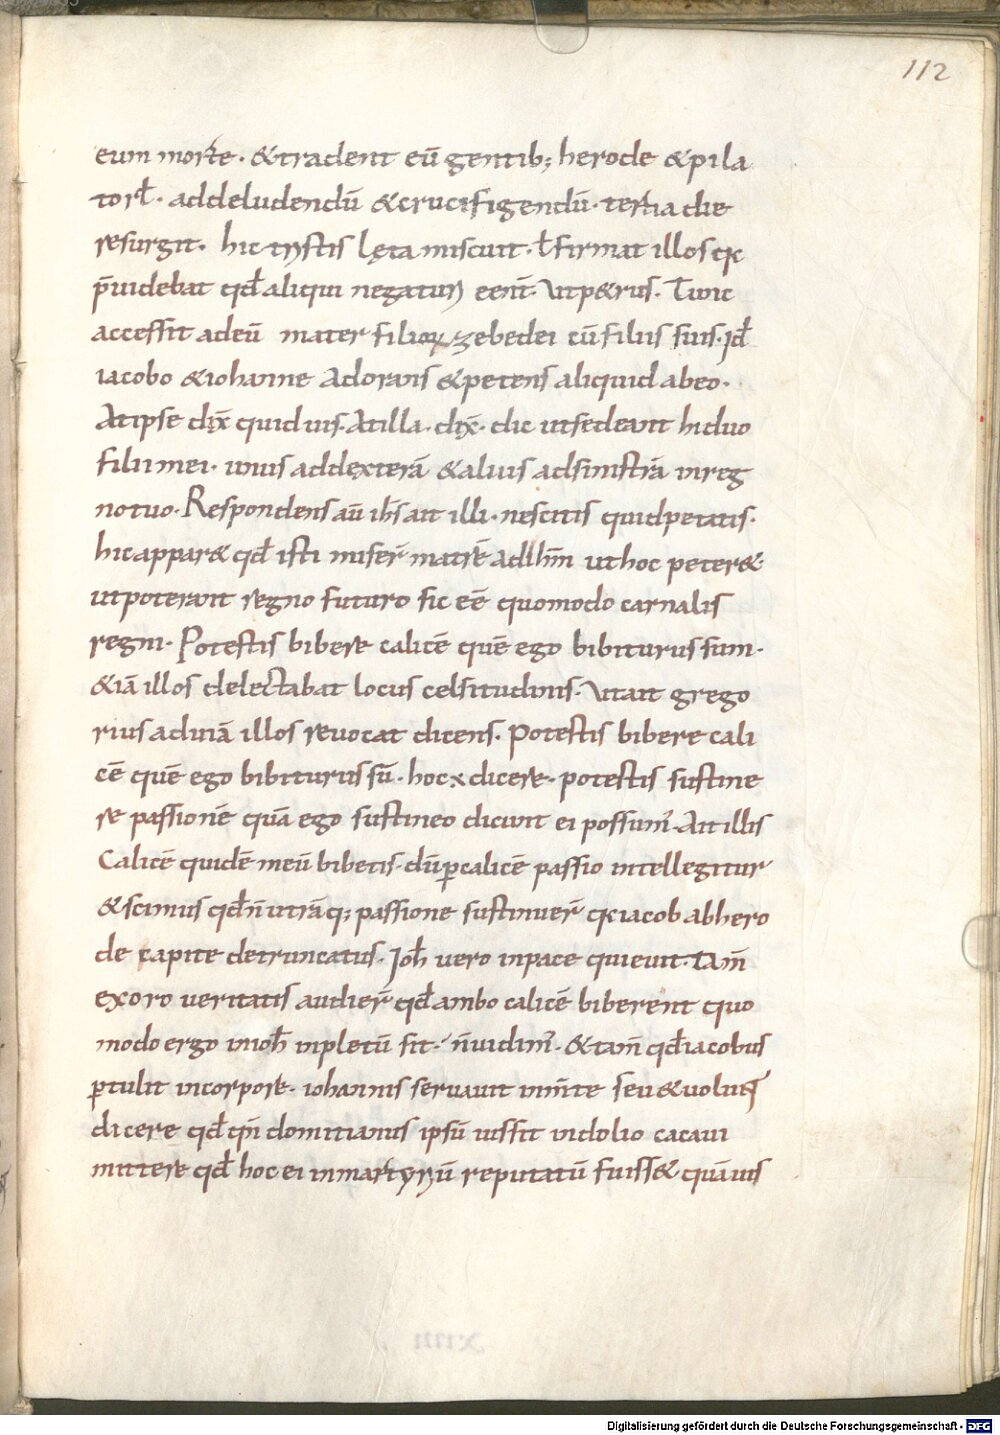 112
eum morte. & tradent eū gentib; herode & pila
tori. addeludendū & crucifigendū. tertia die
resurgit. hic trystis lęta miscuit. ł firmat illos qđ
p̄uidebat qđ aliqui negaturi eent. Ut p&rus. Tunc
accessit ad eū mater filioꝝ zebedei cū filiis suis. Jđ
iacobo & iohanne Adorans & petens aliquid ab eo.
At ipse dix̄ quid uis. At illa. dix̄. dic ut sedeant hi duo
filii mei. unus ad dexterā & alius ad sinistrā in reg
no tuo. Respondens aū ih̄s ait illi. nescitis quid petatis.
hic appar& qđ isti miser̄ matrē ad ih̄m ut hoc peter&
ut poterant regno futuro sic eē quomodo carnalis
regni. Potestis bibere calicē quē ego bibiturus sum.
& iā illos delectabat locus celsitudinis. Ut ait grego
rius ad uiā illos reuocat dicens. Potestis bibere cali
cē quē ego bibiturus sū. hoc x dicere. potestis sustine
re passionē quā ego sustineo dicunt ei possum'. Ait illis
Calicē quidē meū bibetis. dū ꝑ calicē passio intellegitur
& scimus qđ n̄ utrāq; passione sustinuer̄ iacob ab hero
de capite detruncatus. Joh̄ vero in pace quieuit. tam̄
ex oro ueritatis audier̄ qđ ambo calicē biberent quo
modo ergo in ioh̄ inpletū sit. n̄ uidim'. & tam̄ qđ iacobus
ꝑtulit in corpore. iohannis seruauit in m̄te seu & uoluit
dicere qđ qn̄ domitianus ipsū iussit in dolio cacaui
mittere qđ hoc ei in martyriū reputatū fuiss& quāuis
Digitalisierung gefördert durch die Deutsche Forschungsgemeinschaft - DFG